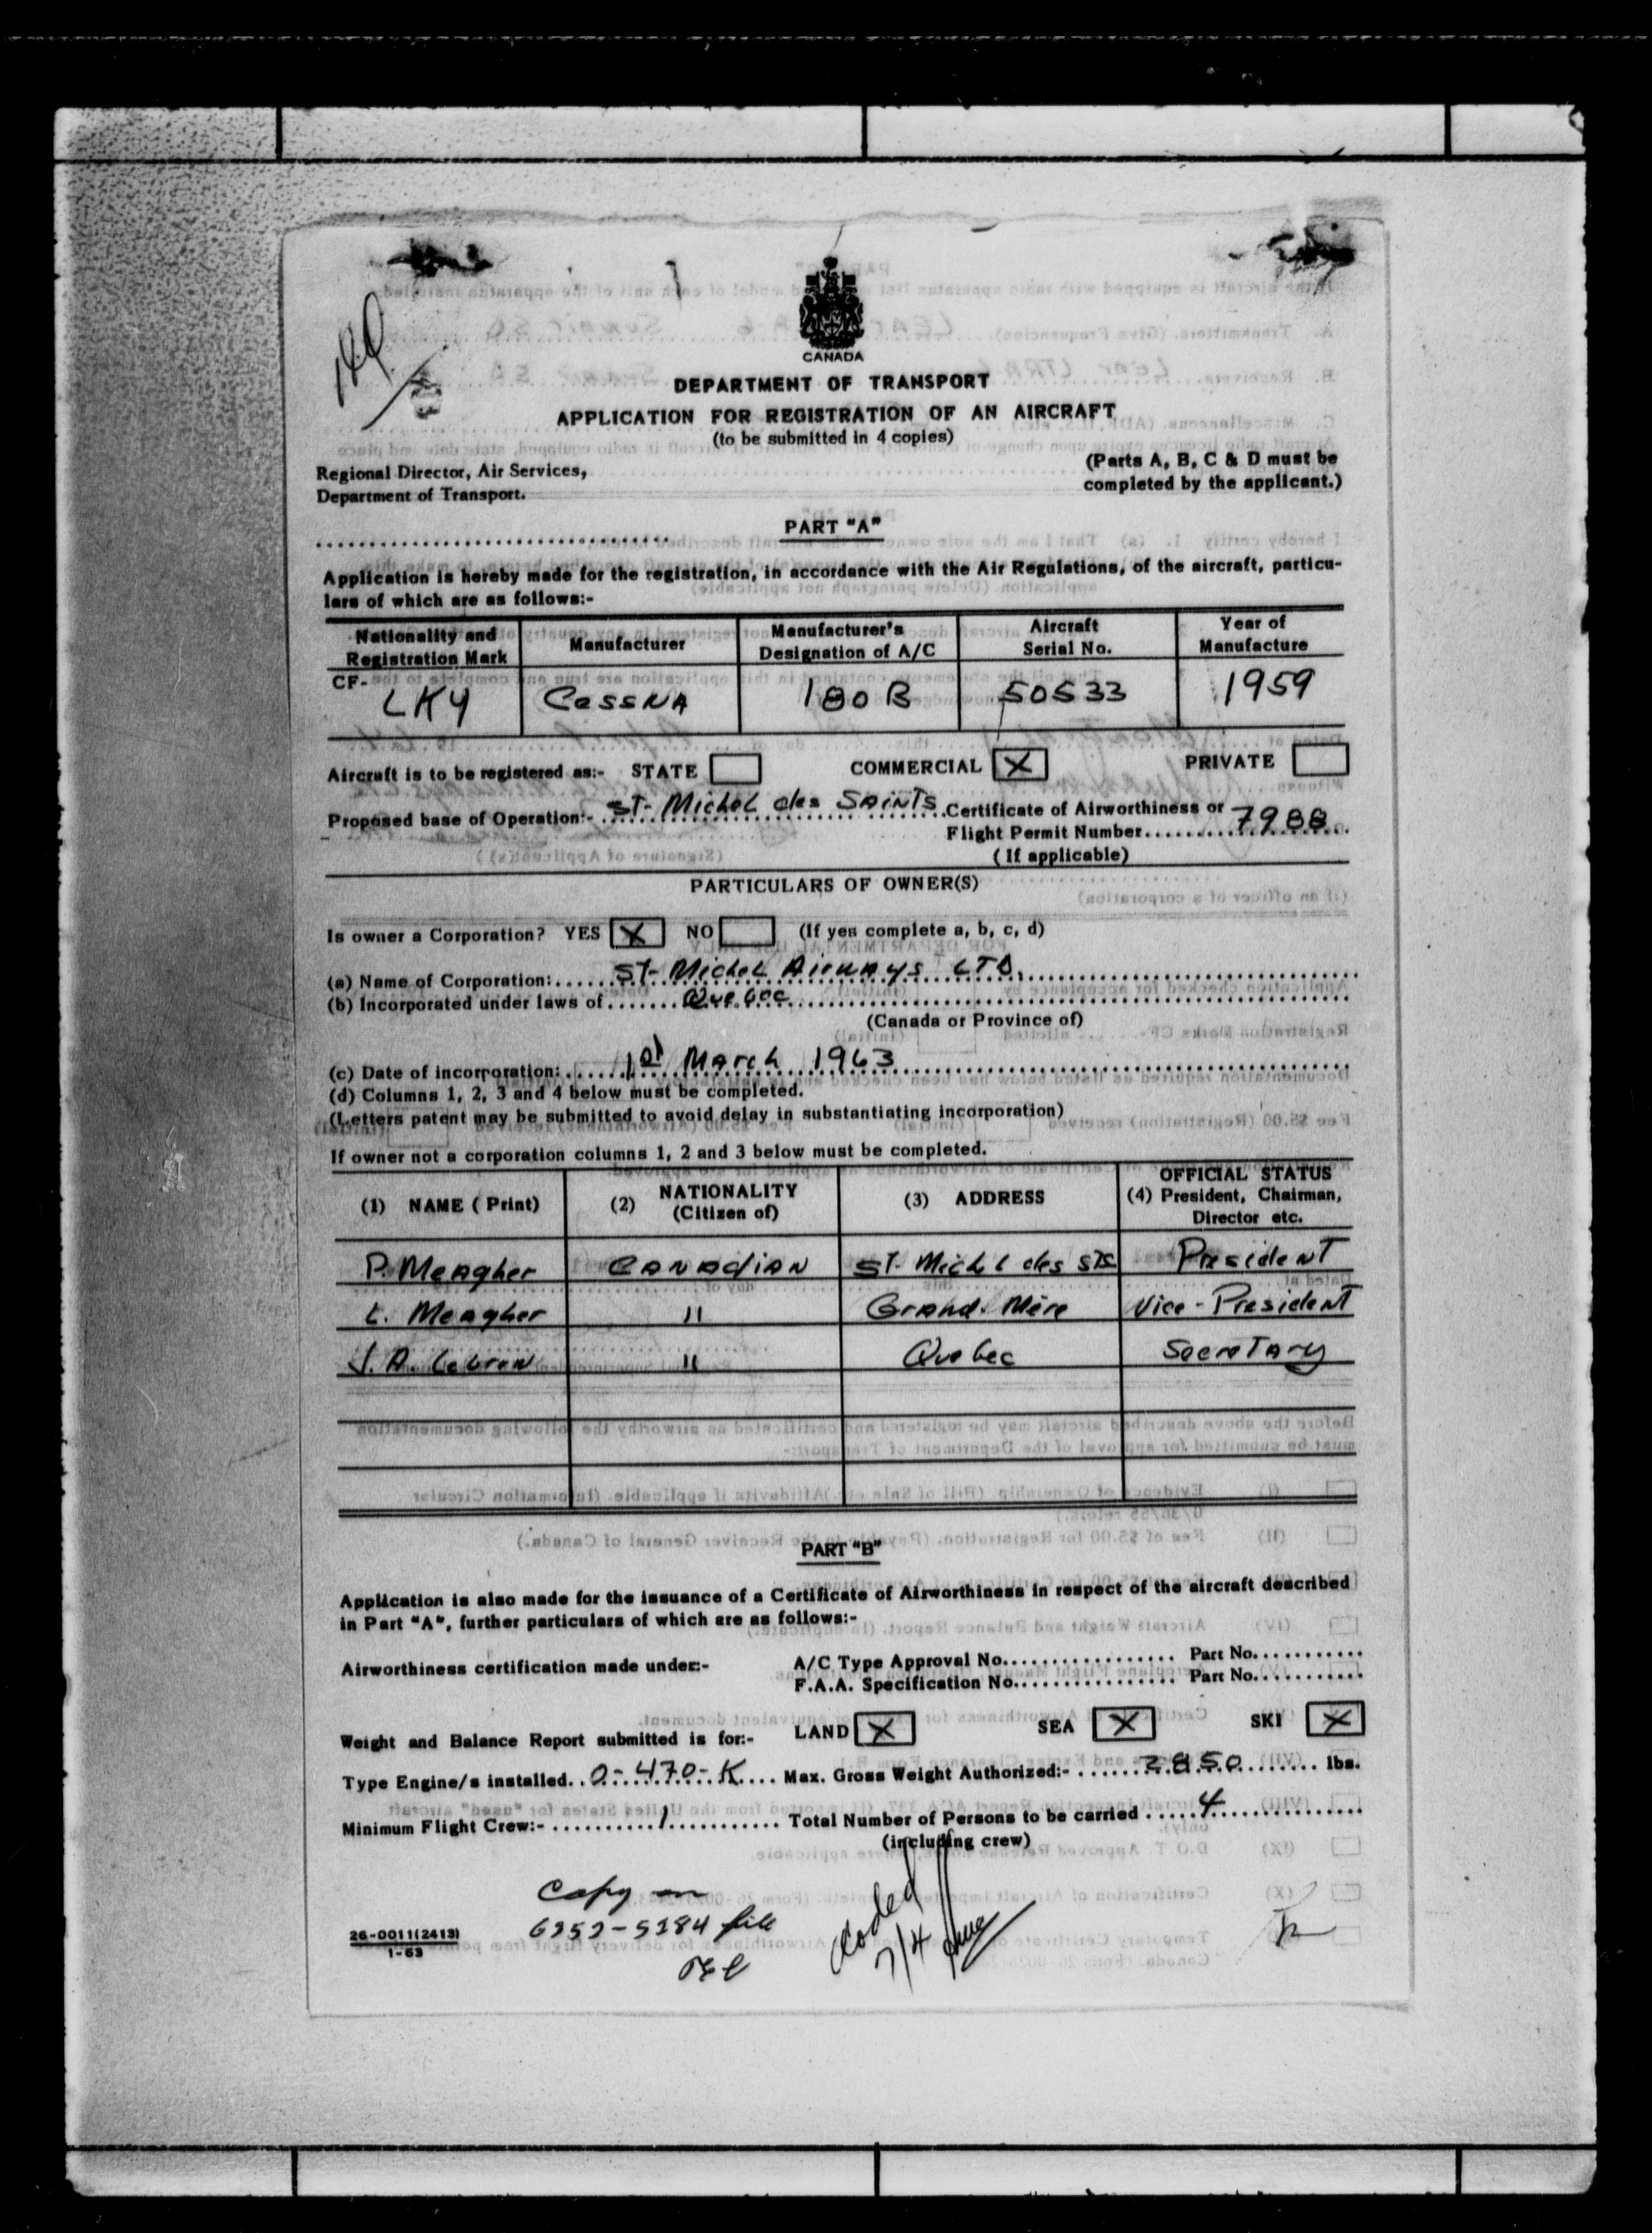 CANADA
DEPARTMENT OF TRANSPORT
APPLICATION FOR REGISTRATION OF AN AIRCRAFT
(to be submitted in 4 copies)
Regional Director, Air Services,
Department of Transport.
(Parts A, B, C & D must be
completed by the applicant.)
PART "A"
Application is hereby made for the registration, in accordance with the Air Regulations, of the aircraft, particu-
lars of which are as follows:-
Nationality and Registration Mark
Manufacturer
Manufacturer's Designation of A/C
Aircraft Serial No.
Year of Manufacture
CF- LKY
CESSNA
180 B
50533
1959
Aircraft is to be registered as:- STATE COMMERCIAL X PRIVATE
Proposed base of Operation:- ST-Michel des SAiNTS Certificate of Airworthiness or
Flight Permit Number 7988
(If applicable)
PARTICULARS OF OWNER(S)
Is owner a Corporation? YES X NO (If yes complete a, b, c, d)
(a) Name of Corporation: ST-Michel Airways LTD.
(b) Incorporated under laws of Quebec
(Canada or Province of)
(c) Date of incorporation: 1st March 1963
(d) Columns 1, 2, 3 and 4 below must be completed.
(Letters patent may be submitted to avoid delay in substantiating incorporation)
If owner not a corporation columns 1, 2 and 3 below must be completed.
(1) NAME (Print)
(2) NATIONALITY (Citizen of)
(3) ADDRESS
OFFICIAL STATUS
(4) President, Chairman, Director etc.
P. Meagher CANADIAN ST-Michel des STS President
L. Meagher " Grand-Mère Vice-President
J.A. " Quebec Secretary
PART "B"
Application is also made for the issuance of a Certificate of Airworthiness in respect of the aircraft described
in Part "A", further particulars of which are as follows:-
Airworthiness certification made under:- A/C Type Approval No. Part No.
F.A.A. Specification No. Part No.
Weight and Balance Report submitted is for:- LAND X SEA X SKI X
Type Engine/s installed O-470-K Max. Gross Weight Authorized:- 2850 lbs.
Minimum Flight Crew:- 1 Total Number of Persons to be carried 4
(including crew)
Copy on
6252-5284 file
Coded
7/4
26-0011(2413)
1-63